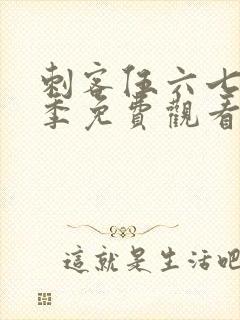 刺客伍六七
季免費觀看
這就是生活吧